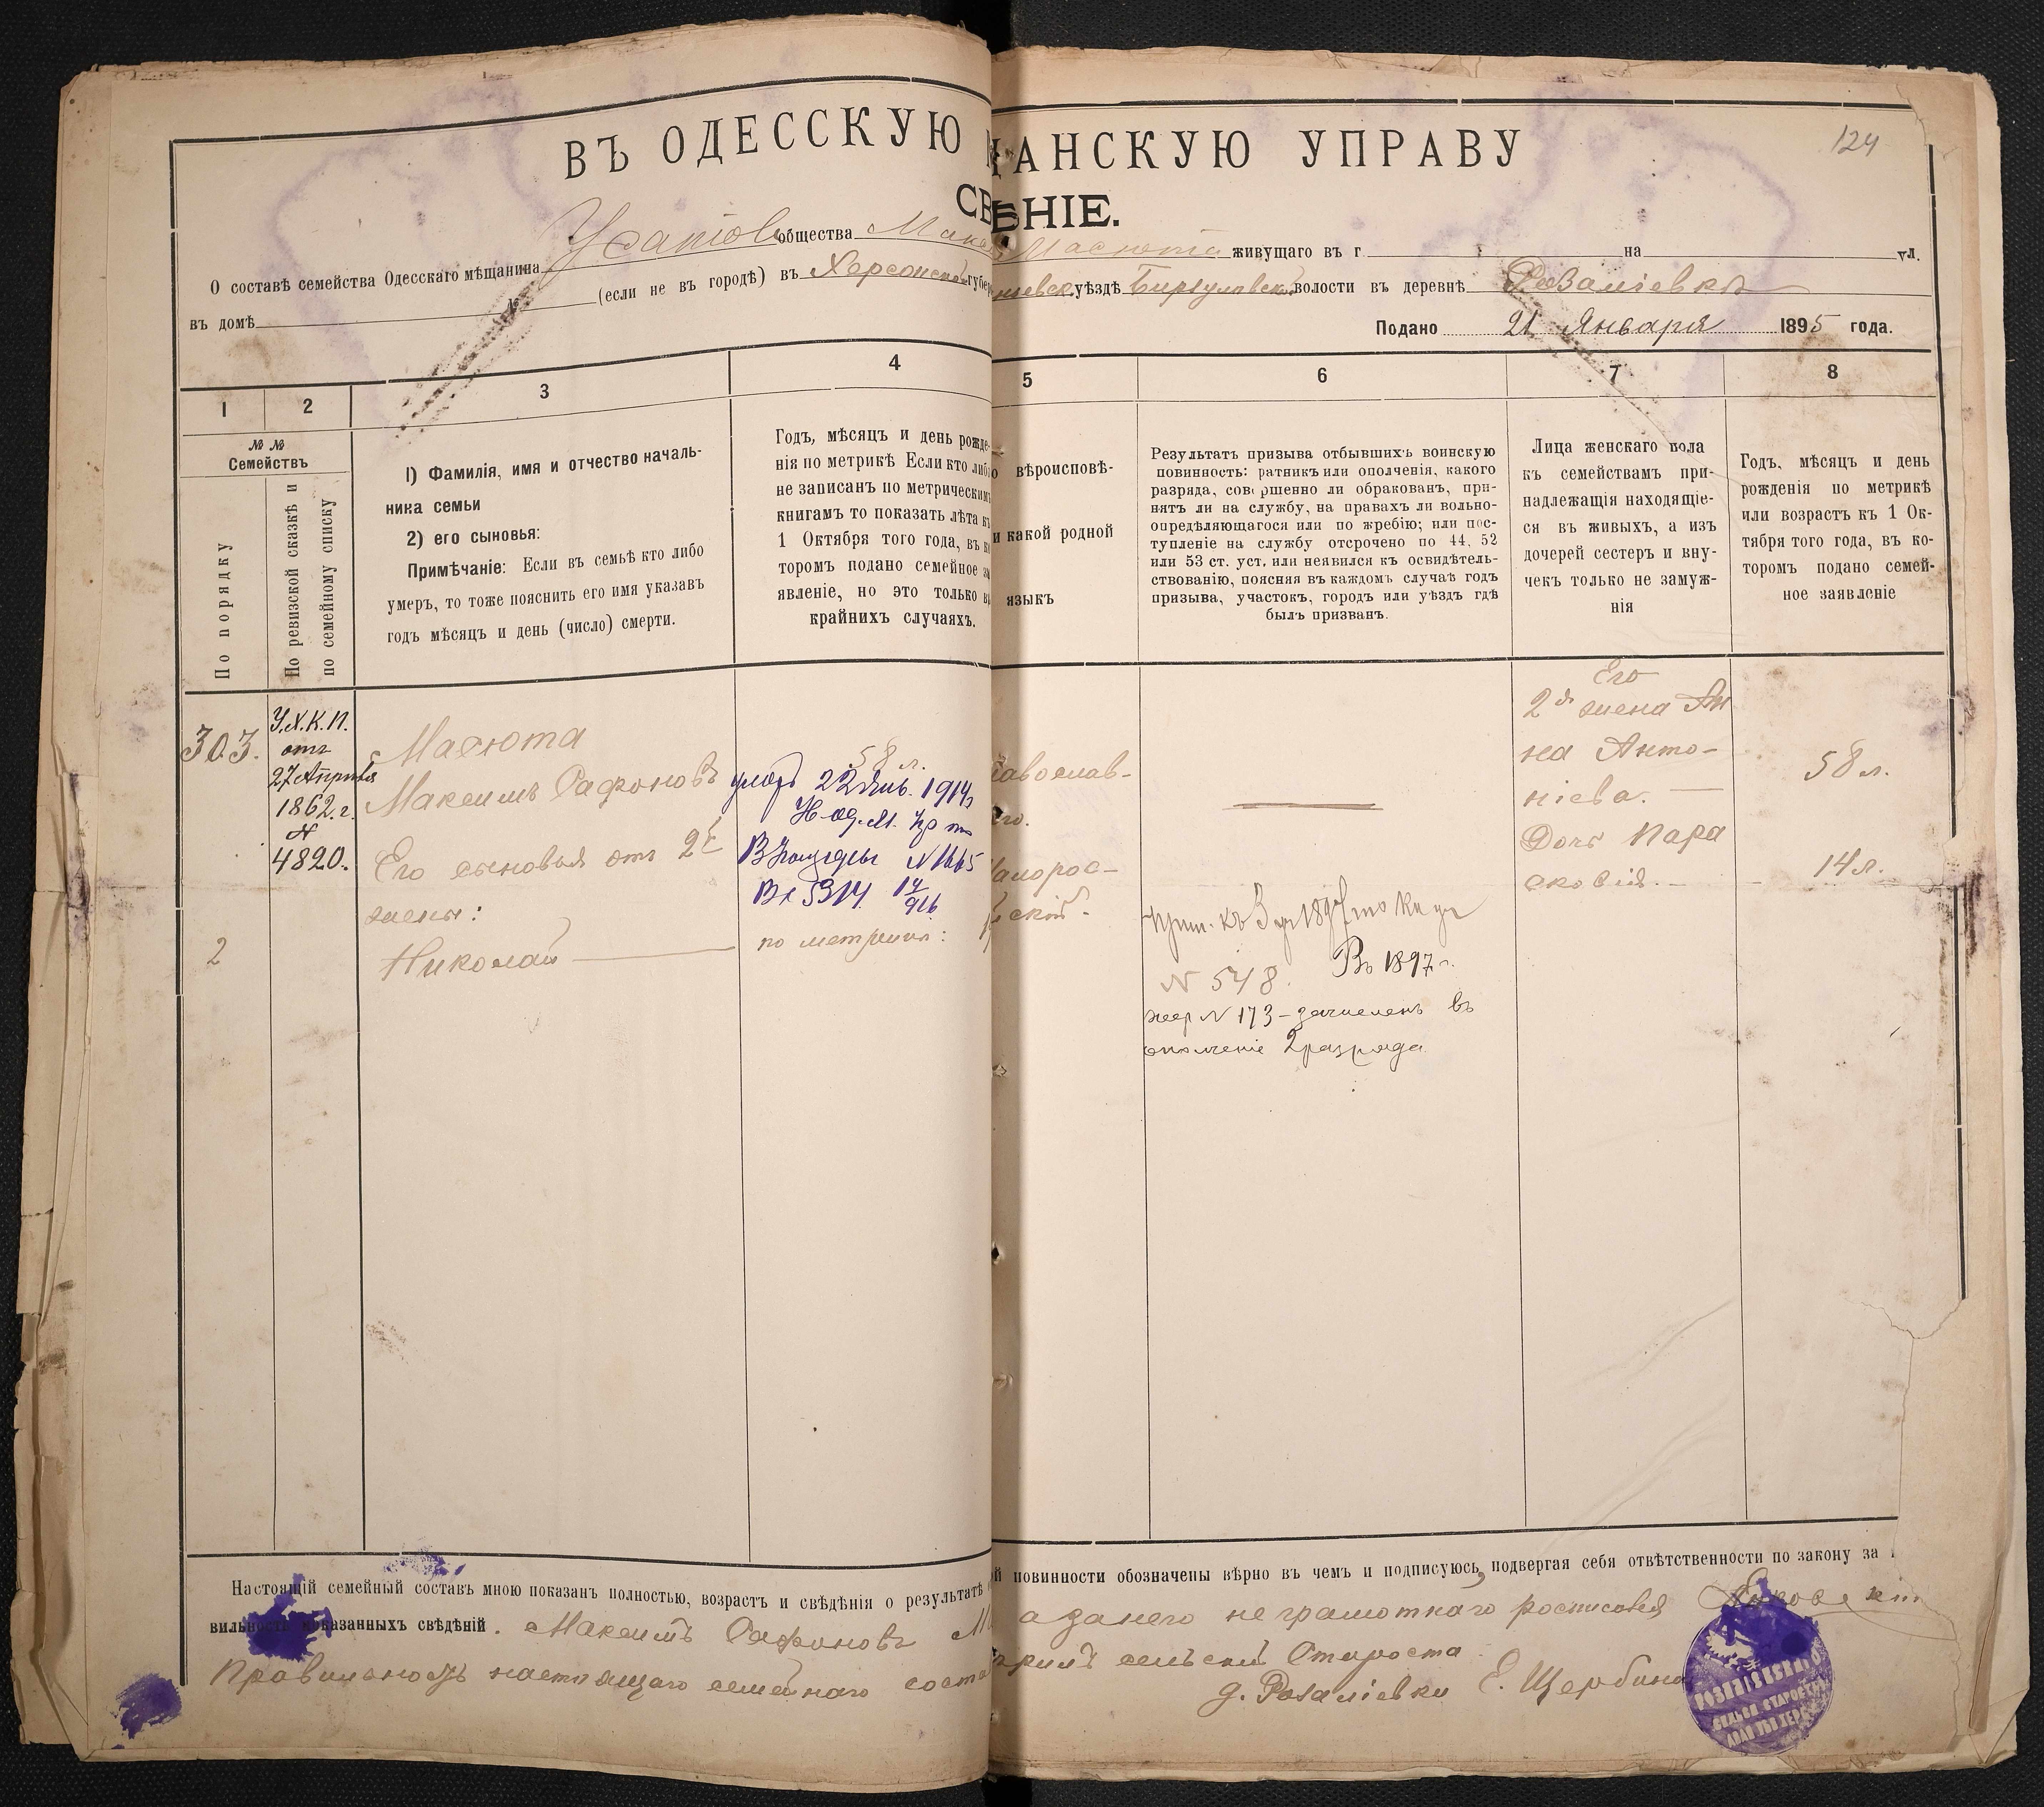 124
ВЪ ОДЕССКУЮ М ЩАНСКУЮ УПРАВУ
СВ ѢНІЕ.
О составѣ семейства Одесскаго мѣщанина Усатов общества Макс Масюта живущаго въ г на ул.
въ домѣ № (если не въ городѣ) въ Херсонской губер ньевск уѣздѣ Биргуловской волости въ деревнѣ Розаліевка
Подано 21 Января 1895 года.
1 2 3 4 5 6 7 8
№ №
Семействъ
По порядку
По ревизской сказкѣ и
по семейному списку
1) Фамилія, имя и отчество началь-
ника семьи
2) его сыновья:
Примѣчаніе: Если въ семьѣ кто либо
умеръ, то тоже пояснить его имя указавъ
годъ мѣсяцъ и день (число) смерти.
Годъ, мѣсяцъ и день рожде-
нія по метрикѣ Если кто либо
не записанъ по метрическимъ
книгамъ то показать лѣта къ
1 Октября того года, въ ко
торомъ подано семейное за
явленіе, но это только въ
крайнихъ случаяхъ.
вѣроисповѣ-
и какой родной
языкъ
Результатъ призыва отбывшихъ воинскую
повинность: ратникъ или ополченія, какого
разряда, совершенно ли обракованъ, при-
нятъ ли на службу, на правахъ ли вольно-
опредѣляющагося или по жребію; или пос-
тупленіе на службу отсрочено по 44. 52
или 53 ст. уст. или неявился къ освидѣтель-
ствованію, поясняя въ каждомъ случаѣ годъ
призыва, участокъ, городъ или уѣздъ гдѣ
былъ призванъ.
Лица женскаго пола
къ семействамъ при-
надлежащія находящіе-
ся въ живыхъ, а изъ
дочерей сестеръ и вну-
чекъ только не замуж-
нія
Годъ, мѣсяцъ и день
рожденія по метрикѣ
или возрастъ къ 1 Ок-
тября того года, въ ко-
торомъ подано семей-
ное заявленіе
303.
У.Х.К.П.
отъ
27 Апрѣля
1862. г.
№
4820.
Масюта
Максимъ Сафоновъ
Его сыновья отъ 2й
жены:
2
Николай
58 л.
умеръ 22 Янв. 1914 г.
В № 1665
Вх 5314 14/916
по метрики:
авослав-
го.
алорос-
скій.
№ 548. Въ 1897 г.
жер № 173 - зачисленъ въ
ополченіе 2 разряда
Его
2я жена Ан
на Анто-
ніева.
58 л.
Дочь Пара
сковія.
14 л.
Настоящій семейный составъ мною показанъ полностью, возрастъ и свѣдѣнія о результатѣ й повинности обозначены вѣрно въ чемъ и подписуюсь, подвергая себя отвѣтственности по закону за
вильность показанныхъ свѣдѣній. Максимъ Сафоновъ М а занего неграмотнаго росписовся
Правильность настоящаго семейнаго соста сельскій Староста
д. Розаліевки Е. Щербина